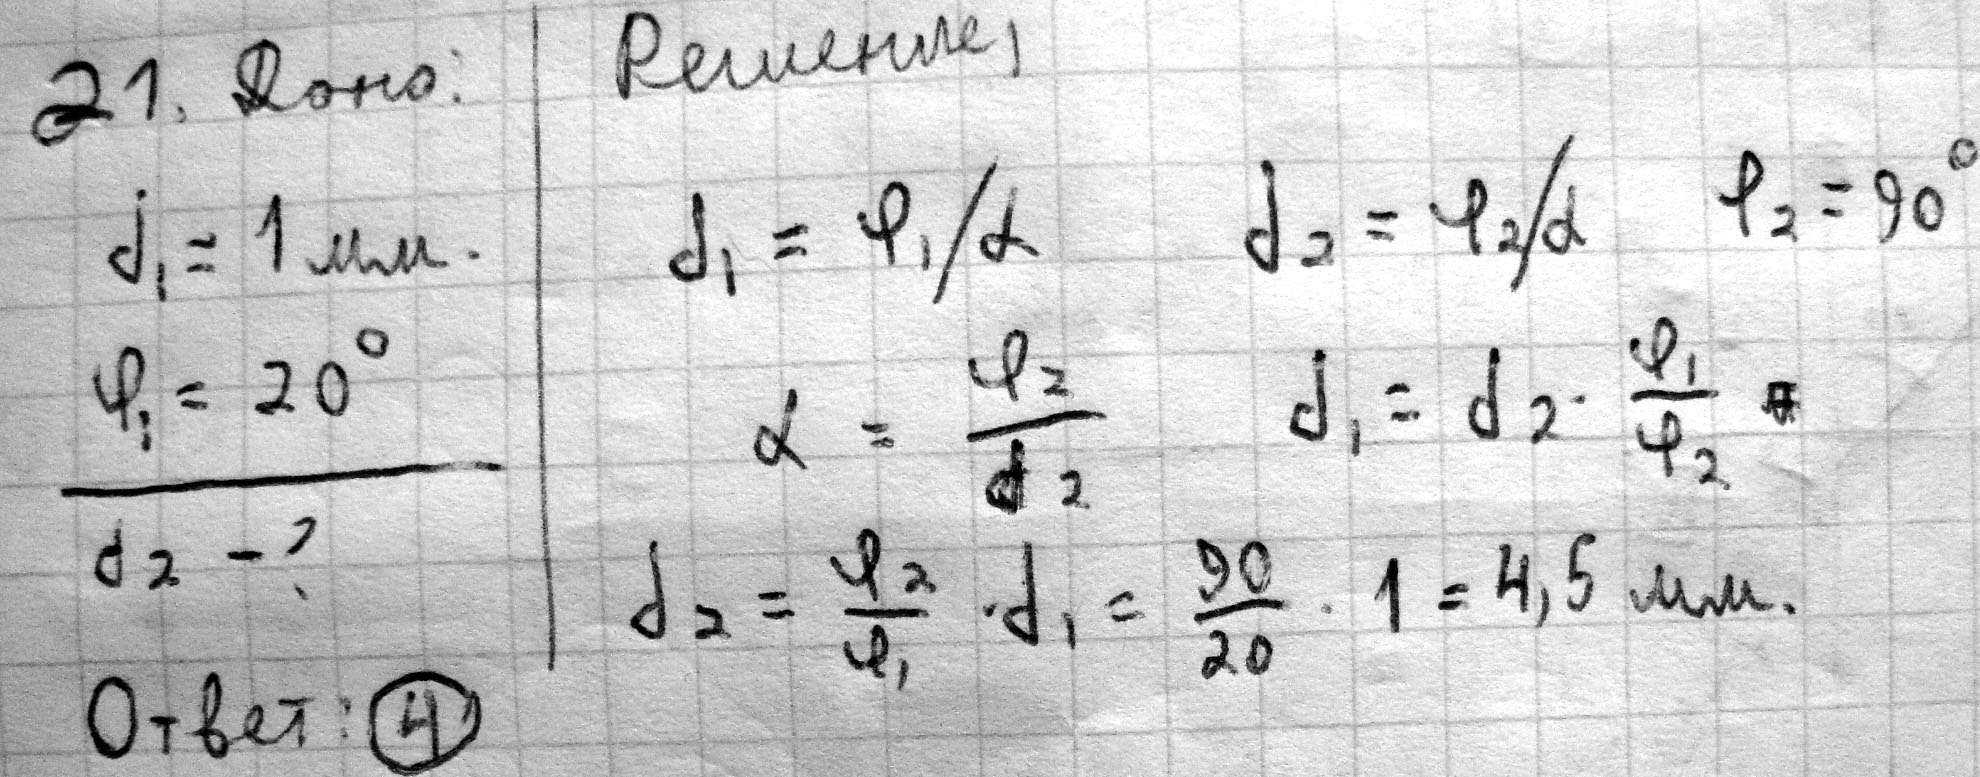 21. Дано:
d₁ = 1 мм.
φ₁ = 20°
d₂ - ?
Ответ: 4
Решение,
d₁ = φ₁/α d₂ = φ₂/α φ₂ = 90°
α = φ₂/d₂ d₁ = d₂ · φ₁/φ₂
d₂ = φ₂/φ₁ · d₁ = 90/20 · 1 = 4,5 мм.